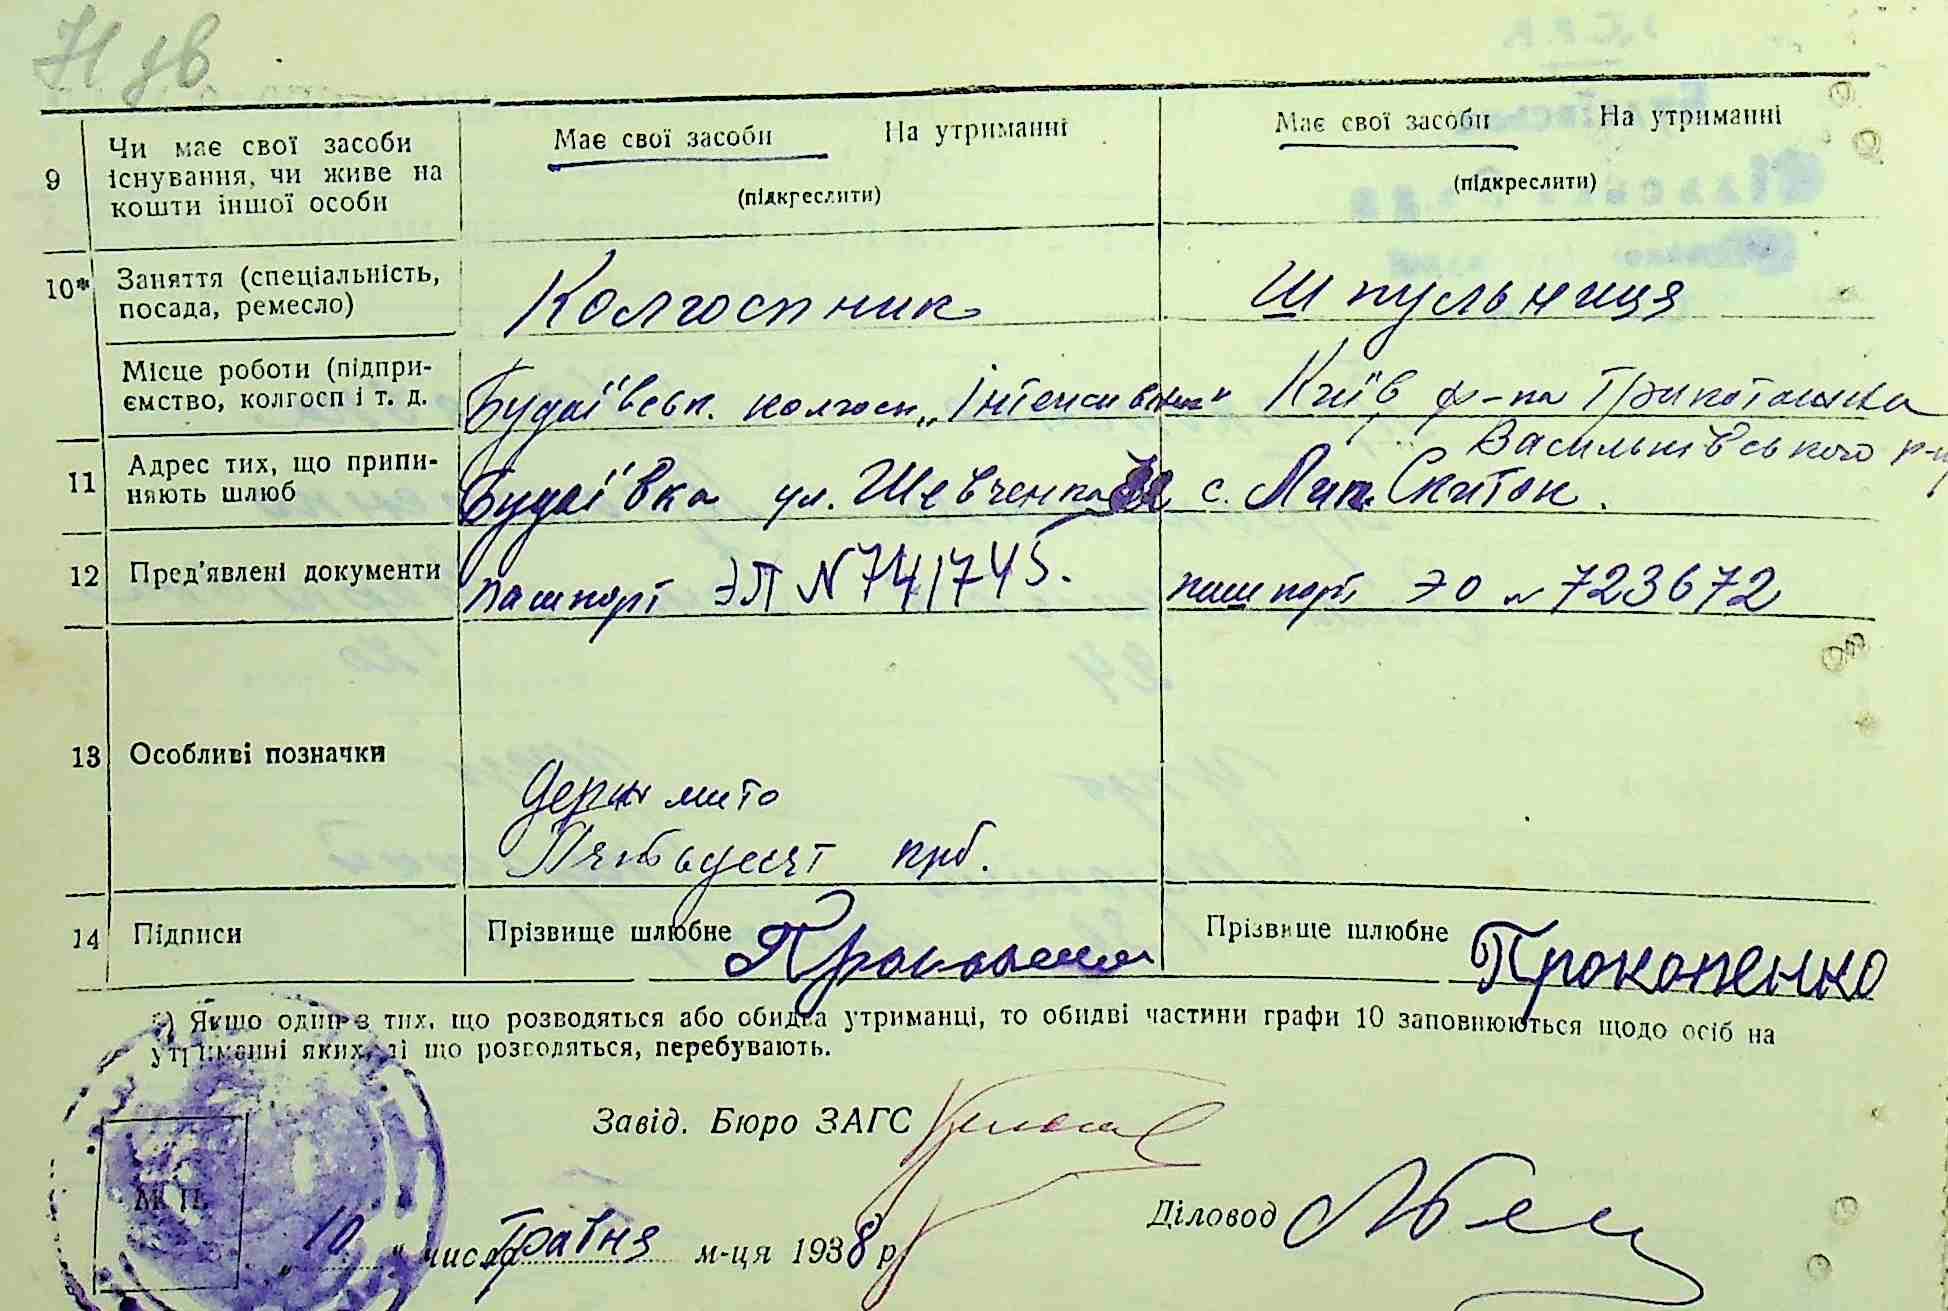 Має свої засоби На утриманні Має свої засоби На утриманні
9 Чи має свої засоби
існування, чи живе на
кошти іншої особи
(підкреслити) (підкреслити)
10* Заняття (спеціальність,
посада, ремесло) Колгоспник Шпульниця
Місце роботи (підпри-
ємство, колгосп і т. д. Будаївськ. колгосп „Інтенсивник" Київ ф-ка Трикотажка
Васильківського р-ну
11 Адрес тих, що припи-
няють шлюб Будаївка ул. Шевченка с. Лип. Скиток.
12 Пред'явлені документи паспорт ЭП N 741745. паспорт ЭО N 723672
13 Особливі позначки
Держ мито
Пятьдесят крб.
14 Підписи Прізвище шлюбне Прокопенко Прізвище шлюбне Прокопенко
*) Якщо один з тих, що розводяться або обидва утриманці, то обидві частини графи 10 заповнюються щодо осіб на
утриманні яких, ті що розводяться, перебувають.
Завід. Бюро ЗАГС
Діловод
М. П.
„10" числа травня м-ця 1938 р.